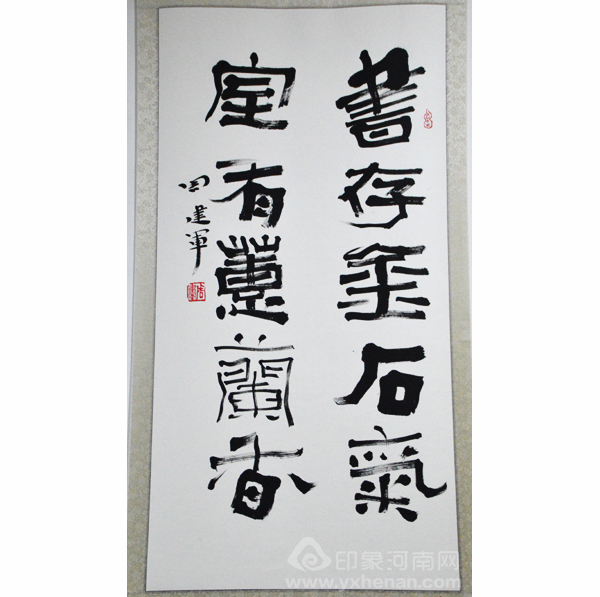 書存金石氣
室有蕙蘭香
田建軍
印象河南网
www.yxhenan.com